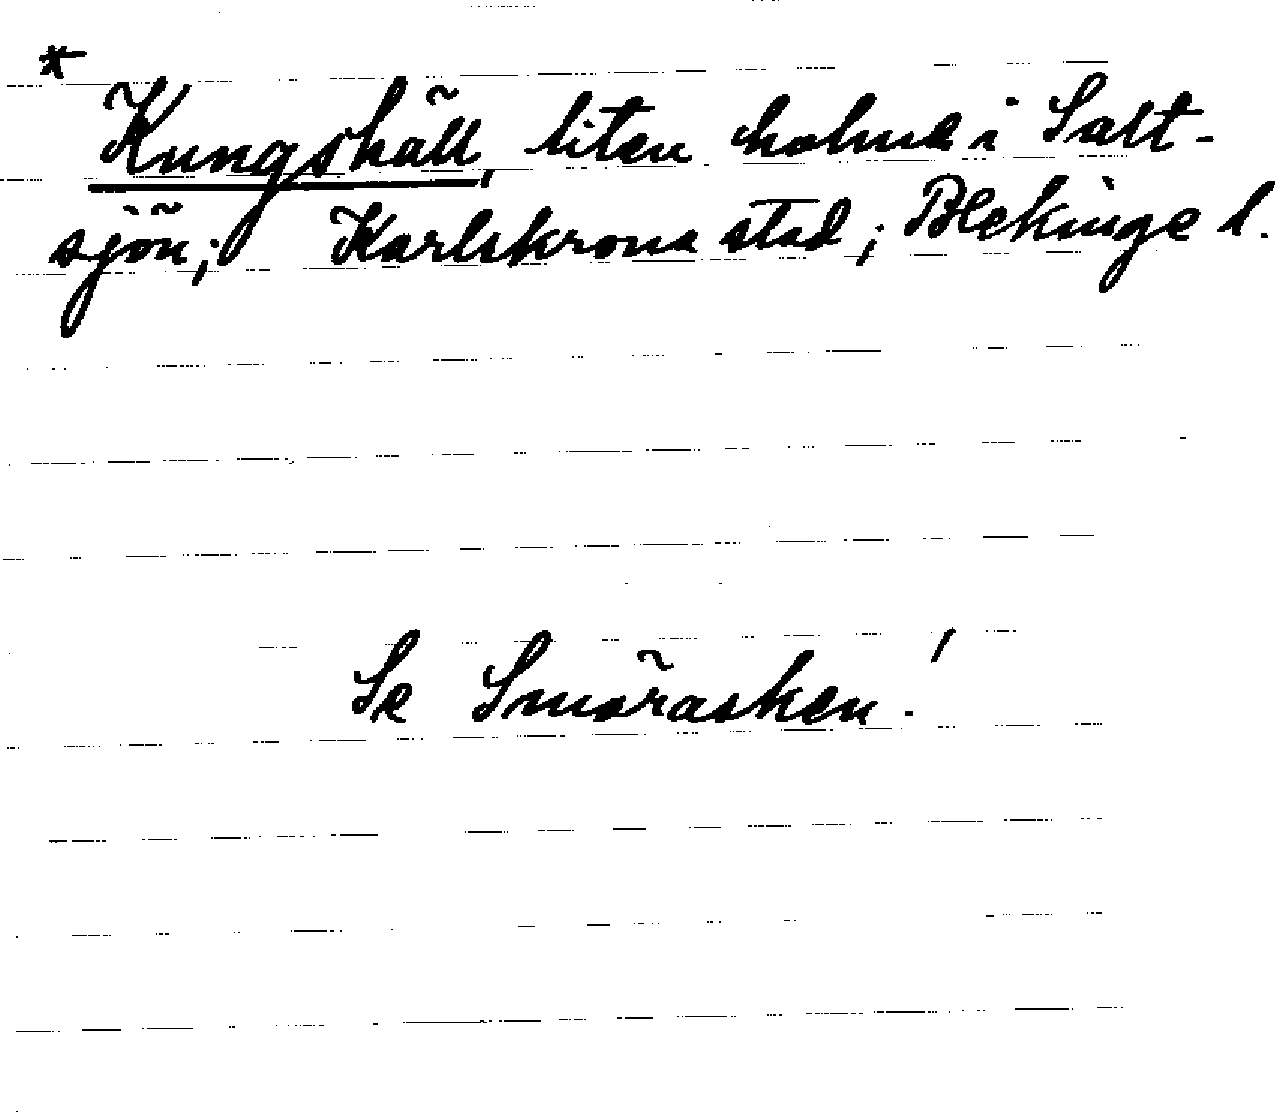 * Kungshäll, liten holme i Salt-
sjön; Karlskrona stad; Blekinge l.
Se Smörasken!